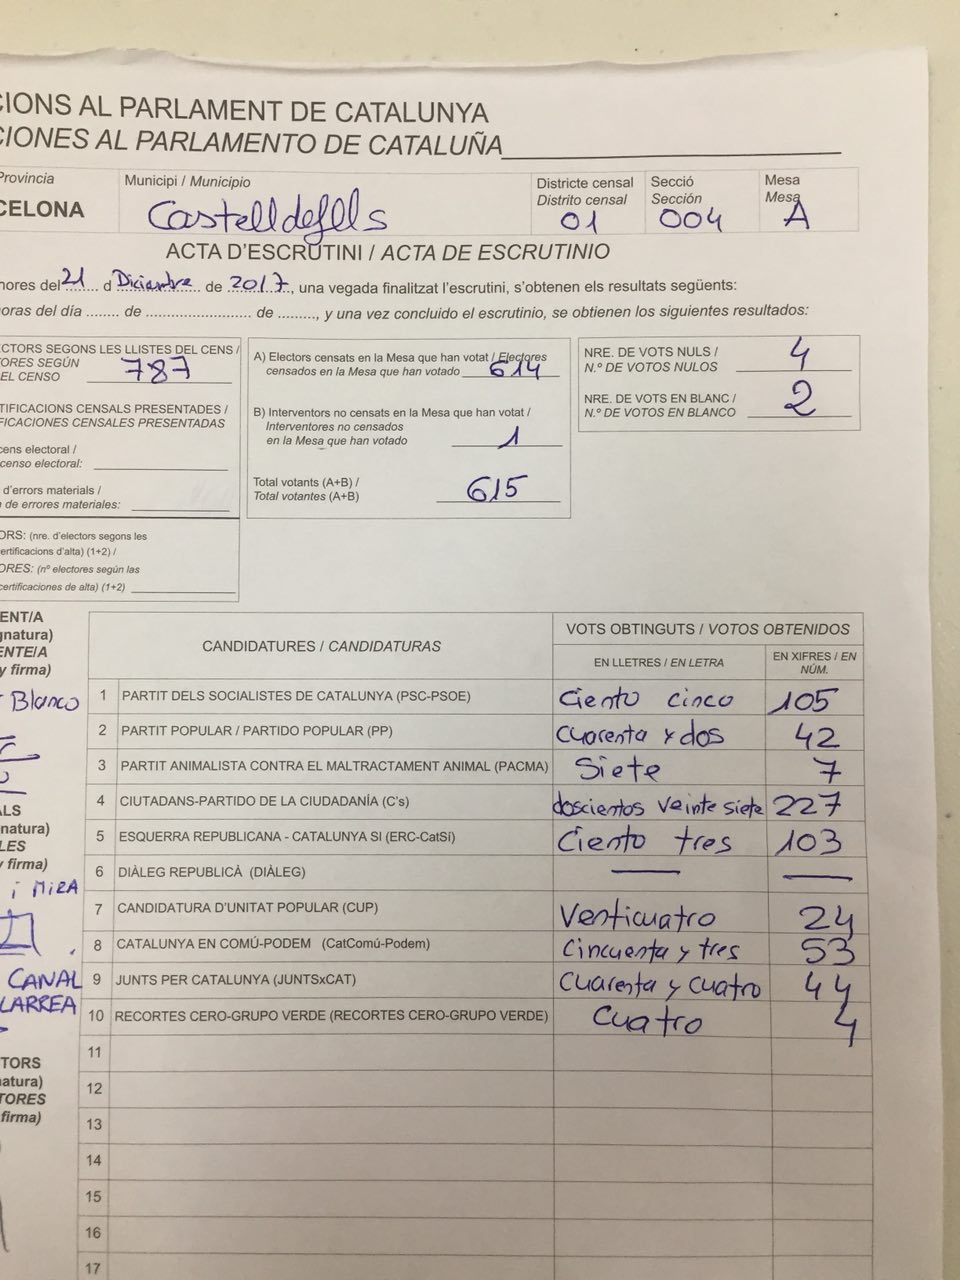 CIONS AL PARLAMENT DE CATALUNYA
CIONES AL PARLAMENTO DE CATALUÑA
Provincia
CELONA
Municipi / Municipio
Castelldefells
Districte censal
Distrito censal
01
Secció
Sección
004
Mesa
Mesa
A
ACTA D'ESCRUTINI / ACTA DE ESCRUTINIO
hores del 21 d Diciembre de 2017, una vegada finalitzat l'escrutini, s'obtenen els resultats següents:
oras del día ........ de ........................ de ........., y una vez concluido el escrutinio, se obtienen los siguientes resultados:
ECTORS SEGONS LES LLISTES DEL CENS /
TORES SEGÚN
EL CENSO 787
TIFICACIONS CENSALS PRESENTADES /
FICACIONES CENSALES PRESENTADAS
cens electoral /
censo electoral:
d'errors materials /
de errores materiales:
ORS: (nre. d'electors segons les
ertificacions d'alta) (1+2) /
ORES: (nº electores según las
certificaciones de alta) (1+2)
A) Electors censats en la Mesa que han votat / Electores
censados en la Mesa que han votado 614
B) Interventors no censats en la Mesa que han votat /
Interventores no censados
en la Mesa que han votado 1
Total votants (A+B) /
Total votantes (A+B) 615
NRE. DE VOTS NULS /
N.º DE VOTOS NULOS 4
NRE. DE VOTS EN BLANC /
N.º DE VOTOS EN BLANCO 2
ENT/A
gnatura)
ENTE/A
y firma)
Blanco
ALS
natura)
LES
y firma)
i MIRA
CANAL
LARREA
TORS
natura)
TORES
firma)
CANDIDATURES / CANDIDATURAS
VOTS OBTINGUTS / VOTOS OBTENIDOS
EN LLETRES / EN LETRA
EN XIFRES / EN
NÚM.
1 PARTIT DELS SOCIALISTES DE CATALUNYA (PSC-PSOE) Ciento cinco 105
2 PARTIT POPULAR / PARTIDO POPULAR (PP) Cuarenta y dos 42
3 PARTIT ANIMALISTA CONTRA EL MALTRACTAMENT ANIMAL (PACMA) Siete 7
4 CIUTADANS-PARTIDO DE LA CIUDADANÍA (C's) doscientos veinte siete 227
5 ESQUERRA REPUBLICANA - CATALUNYA SI (ERC-CatSí) Ciento tres 103
6 DIÀLEG REPUBLICÀ (DIÀLEG) — —
7 CANDIDATURA D'UNITAT POPULAR (CUP) Venticuatro 24
8 CATALUNYA EN COMÚ-PODEM (CatComú-Podem) Cincuenta y tres 53
9 JUNTS PER CATALUNYA (JUNTSxCAT) Cuarenta y cuatro 44
10 RECORTES CERO-GRUPO VERDE (RECORTES CERO-GRUPO VERDE) Cuatro 4
11
12
13
14
15
16
17